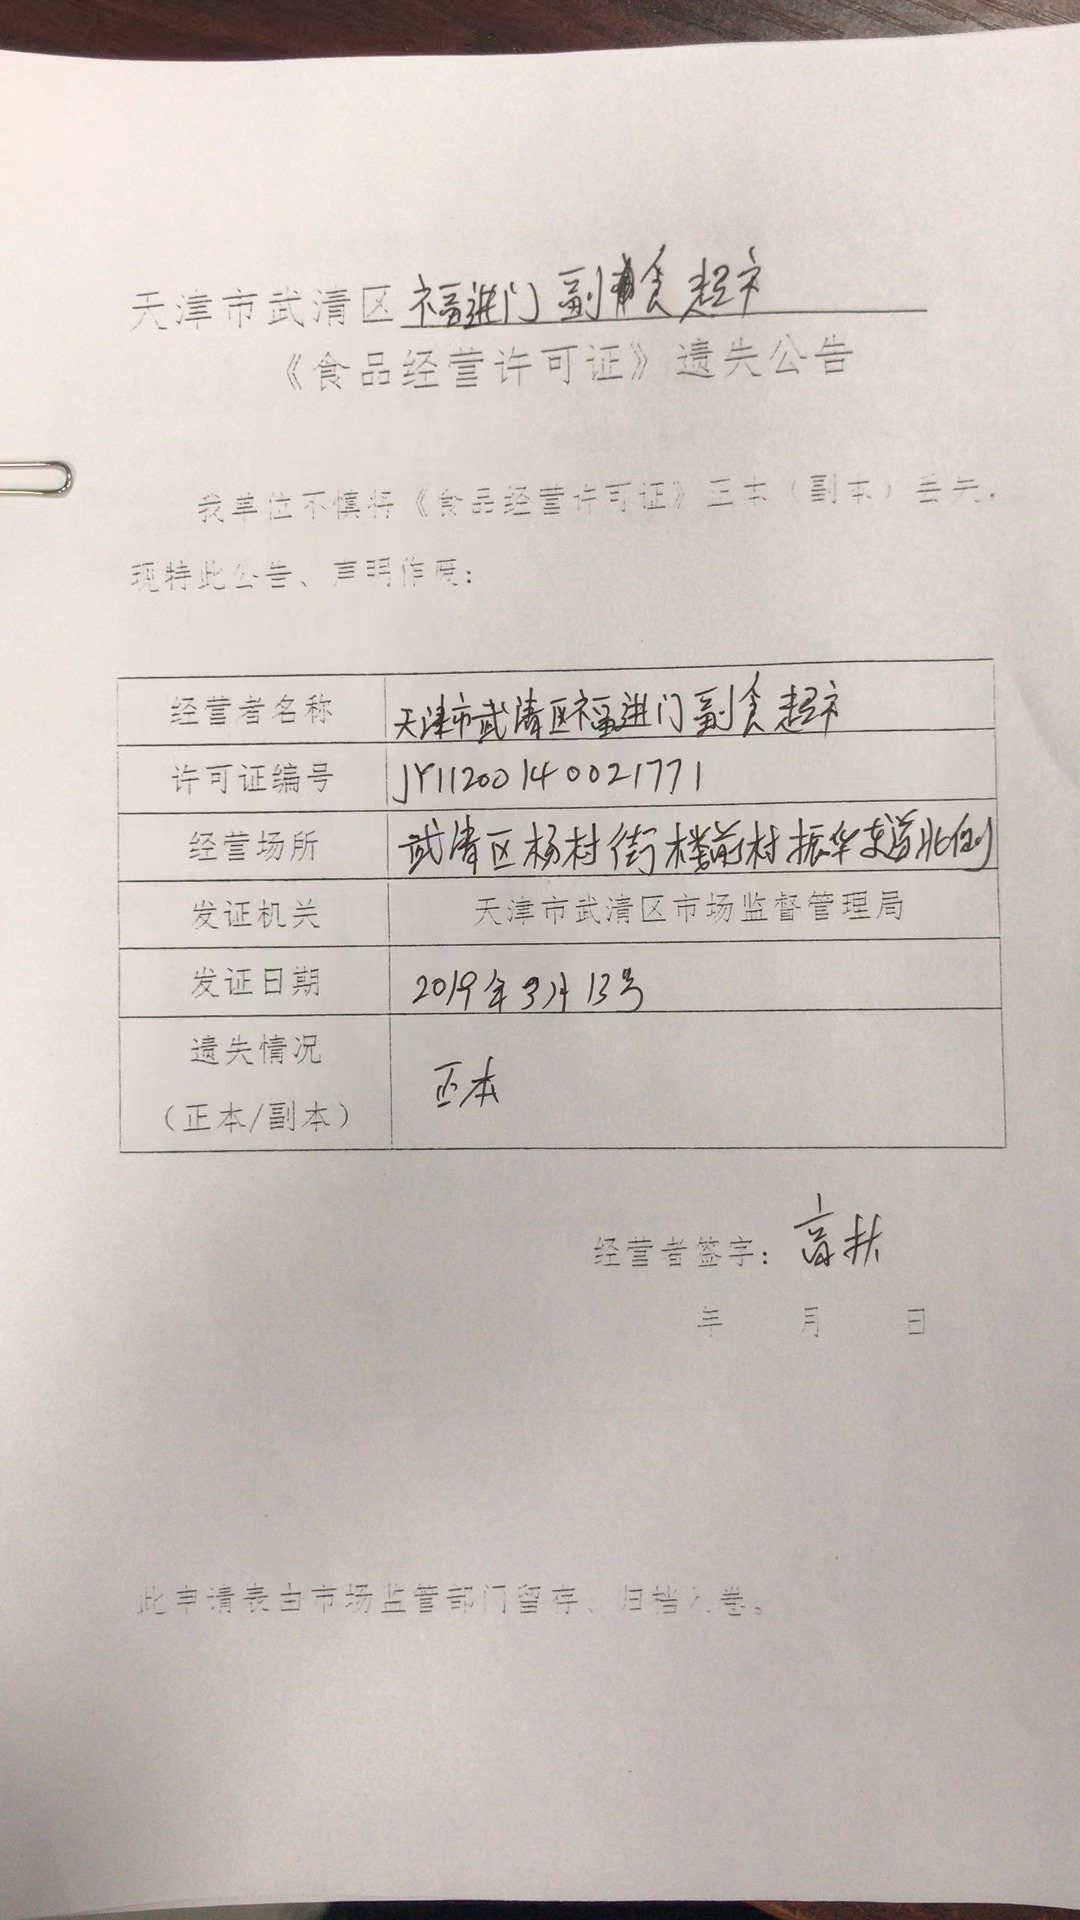 天津市武清区福进门副食超市
《食品经营许可证》遗失公告
我单位不慎将《食品经营许可证》正本（副本）丢失，
现特此公告、声明作废：
经营者名称 天津市武清区福进门副食超市
许可证编号 JY11200140021771
经营场所 武清区杨村街楼前村振华东道北侧
发证机关 天津市武清区市场监督管理局
发证日期 2019年3月13号
遗失情况
（正本/副本） 正本
经营者签字：高扶
年 月 日
此申请表由市场监管部门留存、归档入卷。